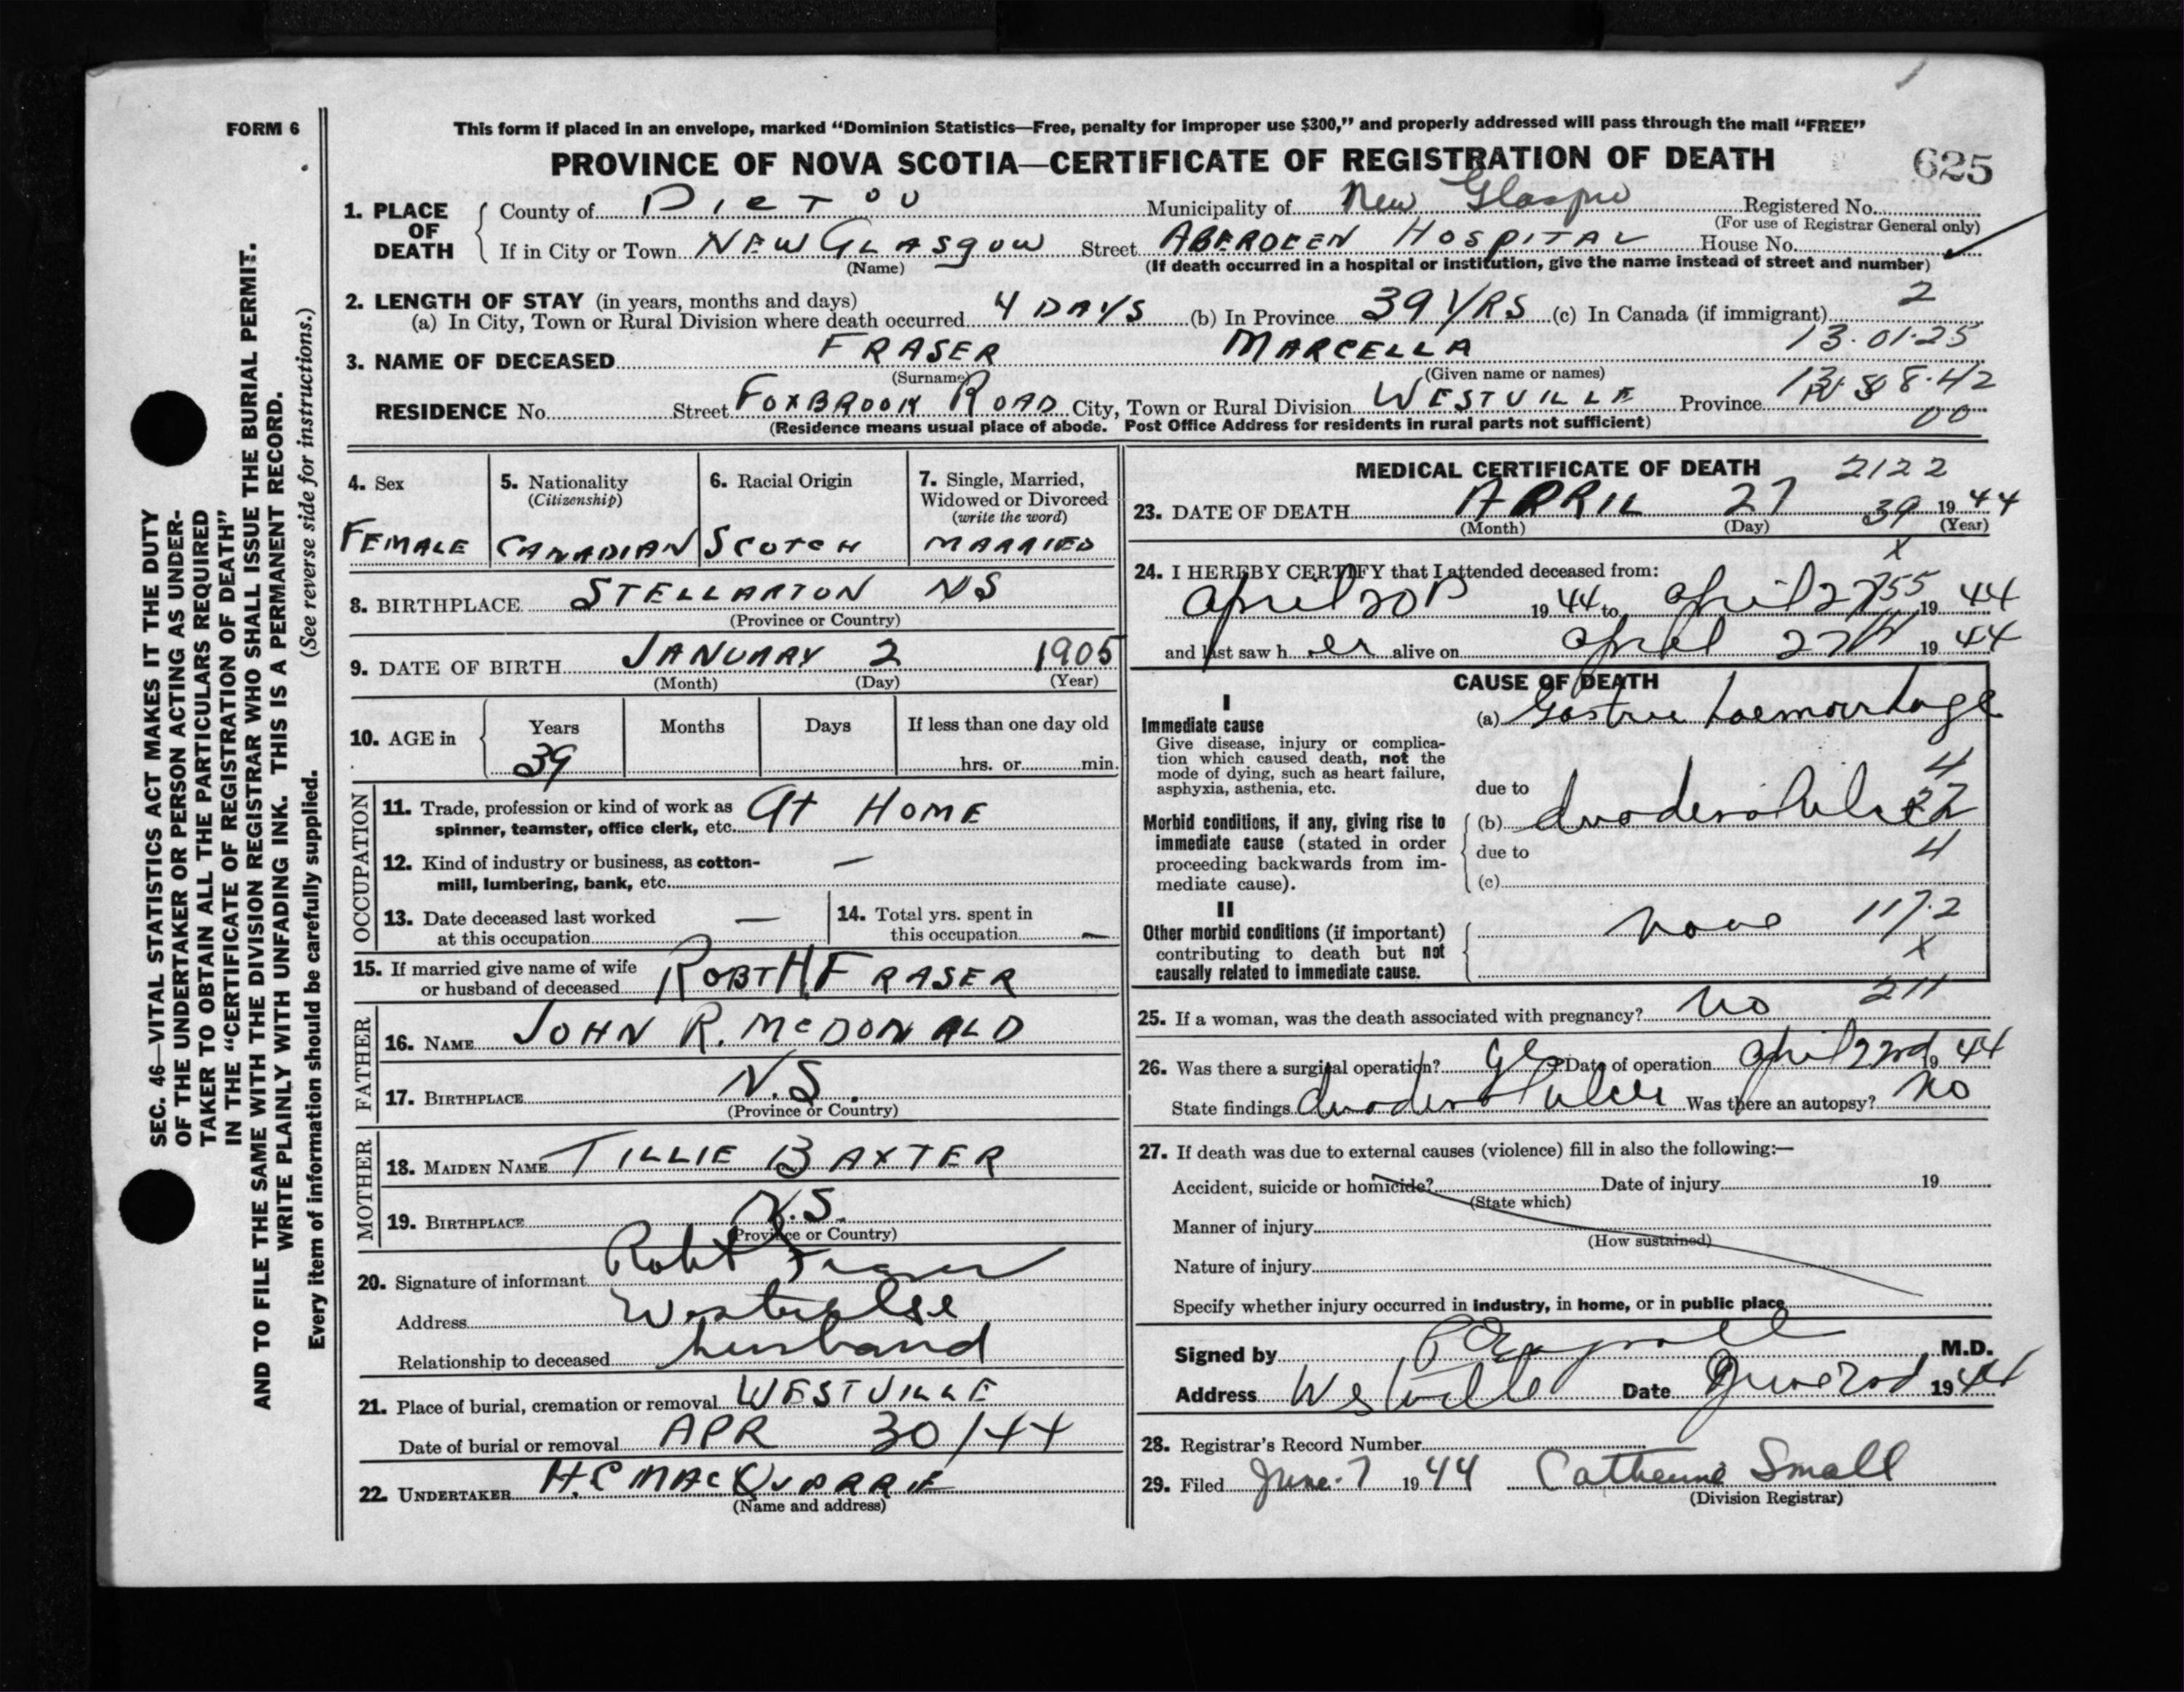 FORM 6
This form if placed in an envelope, marked “Dominion Statistics—Free, penalty for improper use $300,” and properly addressed will pass through the mail “FREE”
PROVINCE OF NOVA SCOTIA—CERTIFICATE OF REGISTRATION OF DEATH
625
1. PLACE OF DEATH
County of PICTOU Municipality of New Glasgow Registered No.
(For use of Registrar General only)
If in City or Town NEW GLASGOW Street ABERDEEN HOSPITAL House No.
(Name) (If death occurred in a hospital or institution, give the name instead of street and number)
2. LENGTH OF STAY (in years, months and days)
(a) In City, Town or Rural Division where death occurred 4 DAYS (b) In Province 39 YRS (c) In Canada (if immigrant) 2
13.01.25
3. NAME OF DECEASED FRASER MARCELLA
(Surname) (Given name or names)
RESIDENCE No. Street FOXBROOK ROAD City, Town or Rural Division WESTVILLE Province 8.42
00
(Residence means usual place of abode. Post Office Address for residents in rural parts not sufficient)
4. Sex FEMALE
5. Nationality (Citizenship) CANADIAN
6. Racial Origin SCOTCH
7. Single, Married, Widowed or Divorced (write the word) MARRIED
8. BIRTHPLACE STELLARTON NS
(Province or Country)
9. DATE OF BIRTH JANUARY 2 1905
(Month) (Day) (Year)
10. AGE in Years Months Days If less than one day old
39 hrs. or min.
OCCUPATION
11. Trade, profession or kind of work as
spinner, teamster, office clerk, etc. At HOME
12. Kind of industry or business, as cotton-
mill, lumbering, bank, etc. —
13. Date deceased last worked
at this occupation —
14. Total yrs. spent in
this occupation —
15. If married give name of wife
or husband of deceased ROBT H. FRASER
FATHER
16. NAME JOHN R. McDONALD
17. BIRTHPLACE N.S.
(Province or Country)
MOTHER
18. MAIDEN NAME TILLIE BAXTER
19. BIRTHPLACE N.S.
(Province or Country)
20. Signature of informant Robt Fraser
Address Westville
Relationship to deceased husband
21. Place of burial, cremation or removal WESTVILLE
Date of burial or removal APR 30/44
22. UNDERTAKER MACQUARRIE
(Name and address)
MEDICAL CERTIFICATE OF DEATH 2122
23. DATE OF DEATH APRIL 27 39 1944
(Month) (Day) (Year)
X
24. I HEREBY CERTIFY that I attended deceased from:
April 20 1944 to April 27 55 1944
and last saw h er alive on April 27th 1944
CAUSE OF DEATH
I
Immediate cause
Give disease, injury or complica-
tion which caused death, not the
mode of dying, such as heart failure,
asphyxia, asthenia, etc.
(a) Gastric haemorrhage
4
due to
Morbid conditions, if any, giving rise to
immediate cause (stated in order
proceeding backwards from im-
mediate cause).
(b) duodenal ulcer
due to 4
(c)
II
Other morbid conditions (if important)
contributing to death but not
causally related to immediate cause.
none 117.2
X
211
25. If a woman, was the death associated with pregnancy? No
26. Was there a surgical operation? yes Date of operation April 22nd 1944
State findings duodenal ulcer Was there an autopsy? No
27. If death was due to external causes (violence) fill in also the following:—
Accident, suicide or homicide? Date of injury 19
(State which)
Manner of injury
(How sustained)
Nature of injury
Specify whether injury occurred in industry, in home, or in public place
Signed by M.D.
Address Westville Date June 2nd 1944
28. Registrar's Record Number
29. Filed June 7 1944 Catherine Small
(Division Registrar)
SEC. 46—VITAL STATISTICS ACT MAKES IT THE DUTY
OF THE UNDERTAKER OR PERSON ACTING AS UNDER-
TAKER TO OBTAIN ALL THE PARTICULARS REQUIRED
IN THE “CERTIFICATE OF REGISTRATION OF DEATH”
AND TO FILE THE SAME WITH THE DIVISION REGISTRAR WHO SHALL ISSUE THE BURIAL PERMIT.
WRITE PLAINLY WITH UNFADING INK. THIS IS A PERMANENT RECORD.
(See reverse side for instructions.)
Every item of information should be carefully supplied.